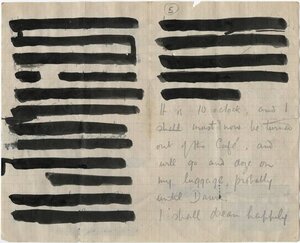 5
It is 10 oclock, and I
shall must now be turned
out of the Café, and
will go and doze on
my luggage, probably
until Dawn.
I shall dream happily